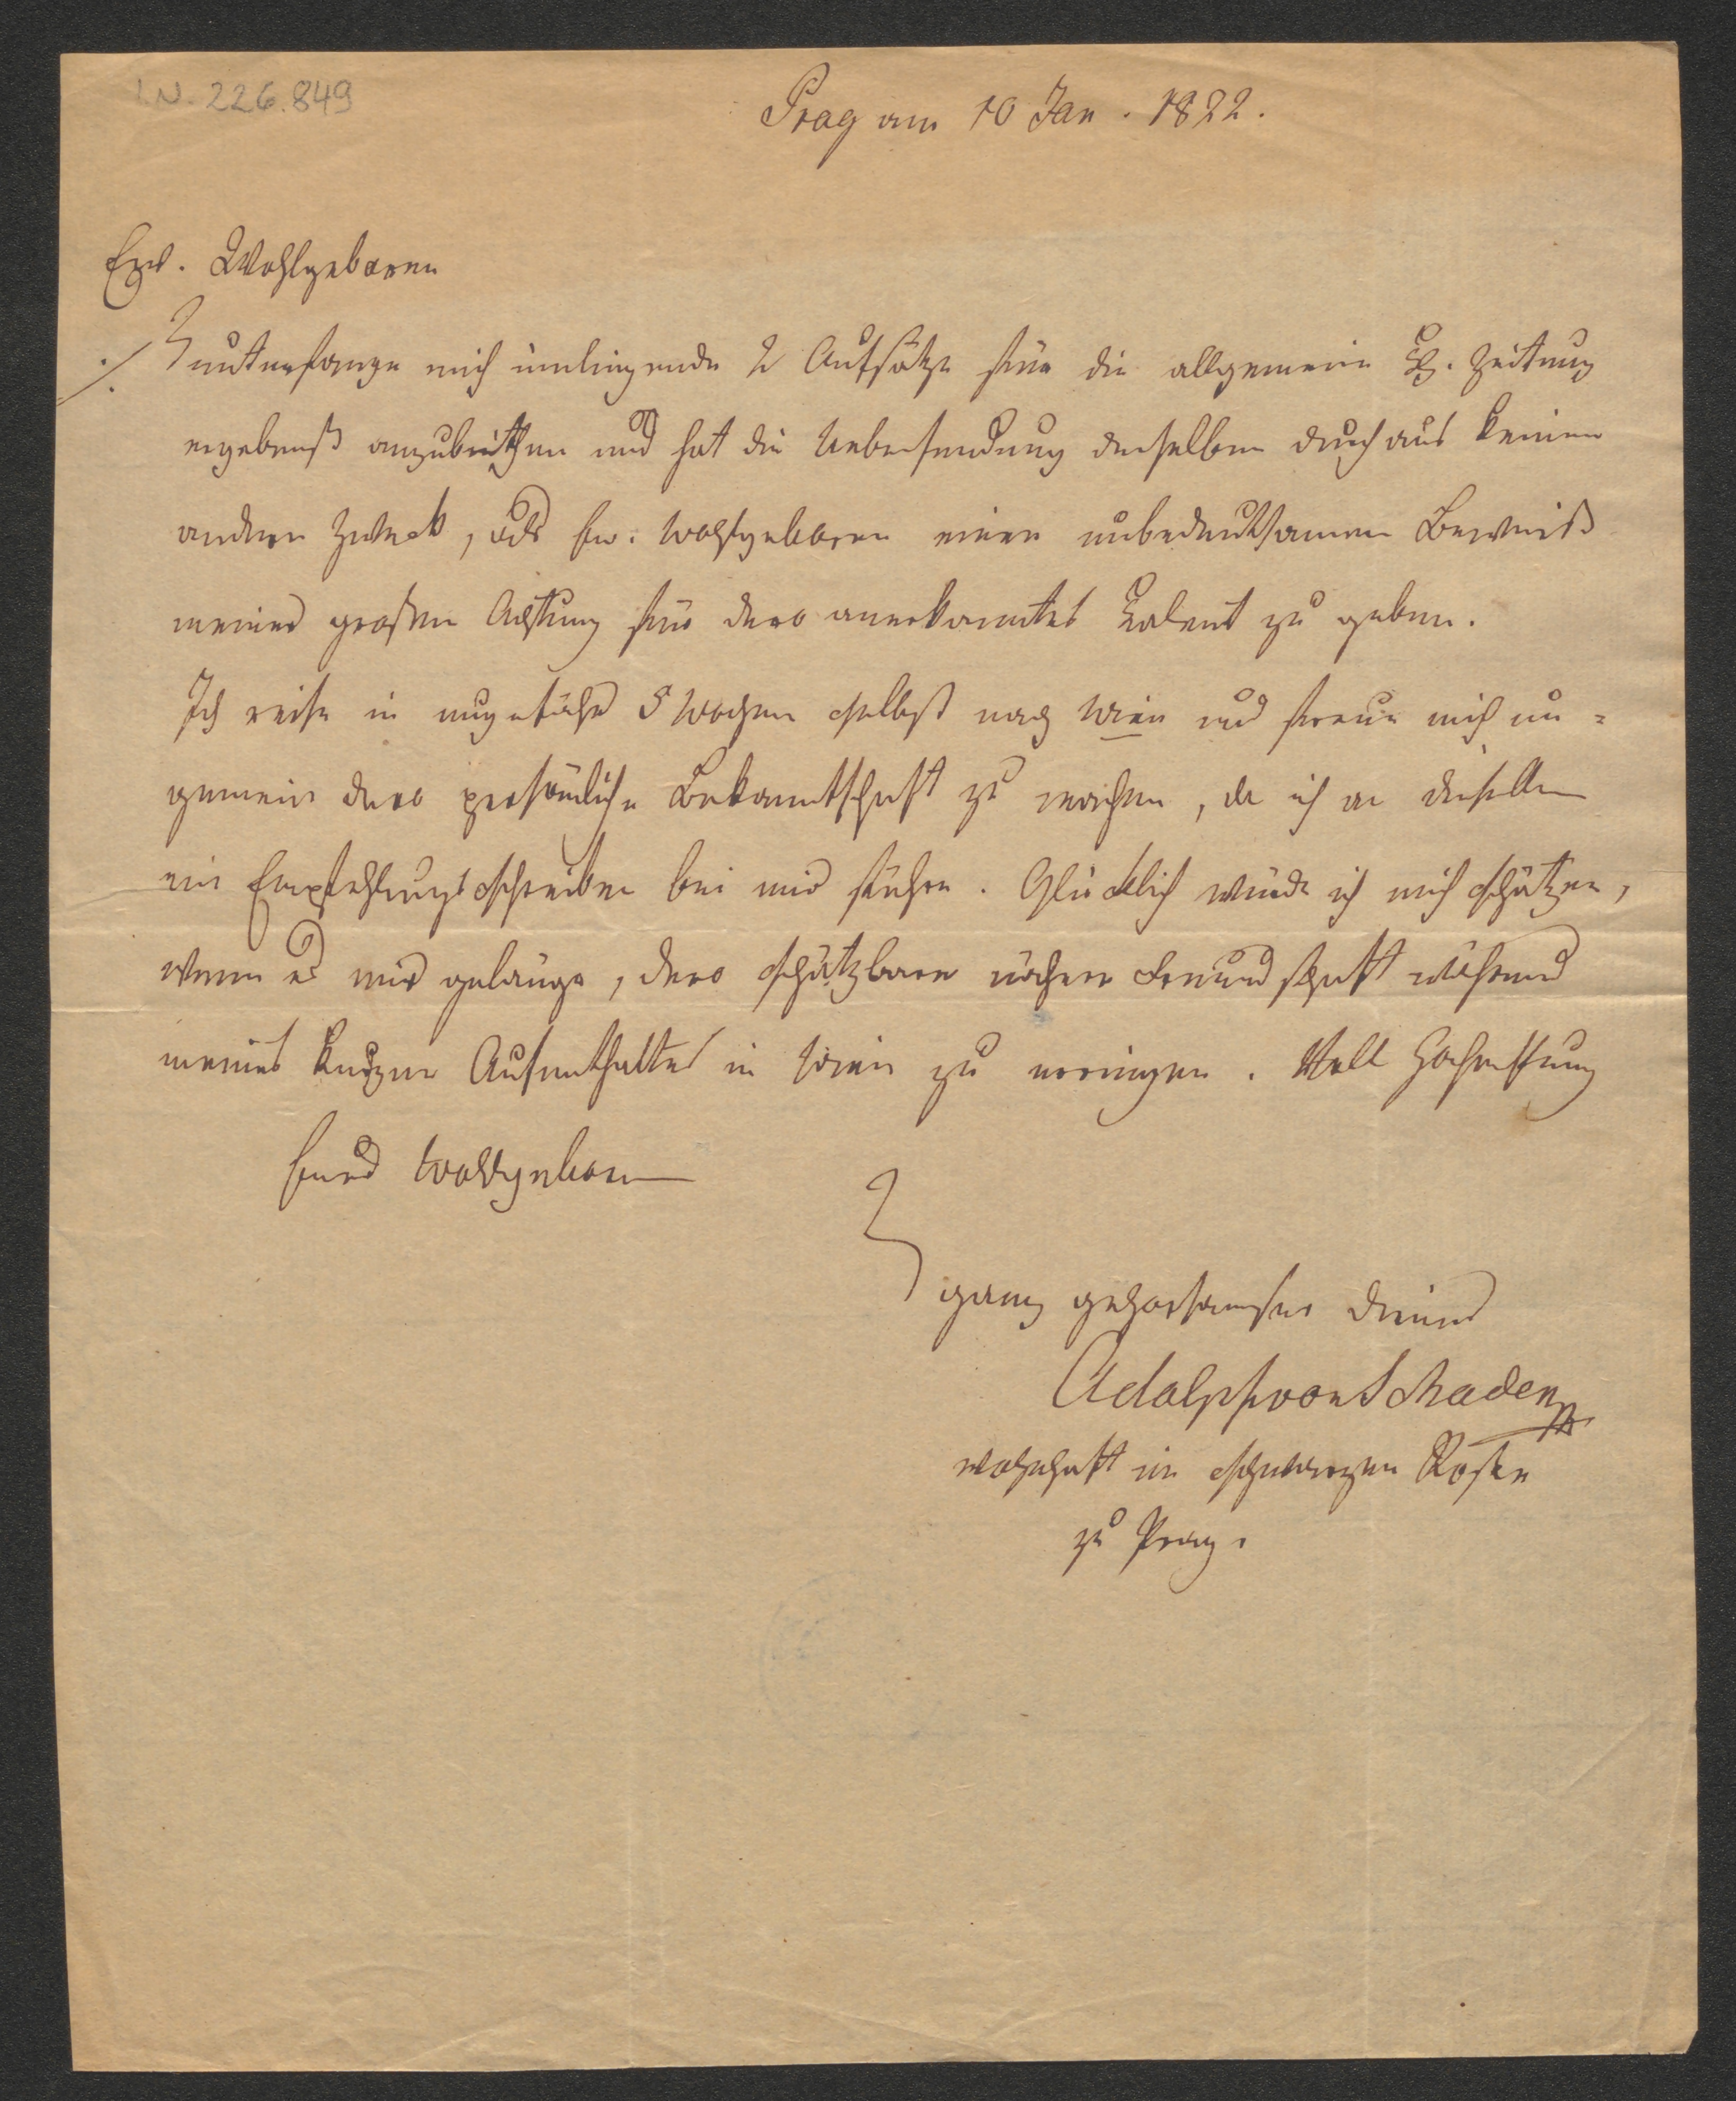 I.N. 226.849
Prag am 10 Jan. 1822.
Ew. Wohlgeboren
./. unterfange mich innliegende 2 Aufsätze für die allgemeine Th. Zeitung
ergebenst anzubiethen und hat die Uebersendung derselben durchaus keinen
andern Zweck, als Ew. Wohlgeboren einen unbedeutsamen Beweiß
meiner großen Achtung für dero anerkanntes Talent zu geben.
Ich reise in ungefähr 5 Wochen selbst nach Wien und freue mich un=
gemein dero persönliche Bekanntschaft zu machen, da ich an dieselben
ein Empfehlungsschreiben bei mir führe. Glücklich würde ich mich schätzen,
wenn es mir gelänge, dero schätzbare nähere Freundschaft während
meines kurzen Aufenthaltes in Wien zu erringen. Voll Hochachtung
Euer Wohlgeboren
ganz gehorsamster Diener
Adolph von Schaden
wohnhaft im schwarzen Rosse
zu Prag.